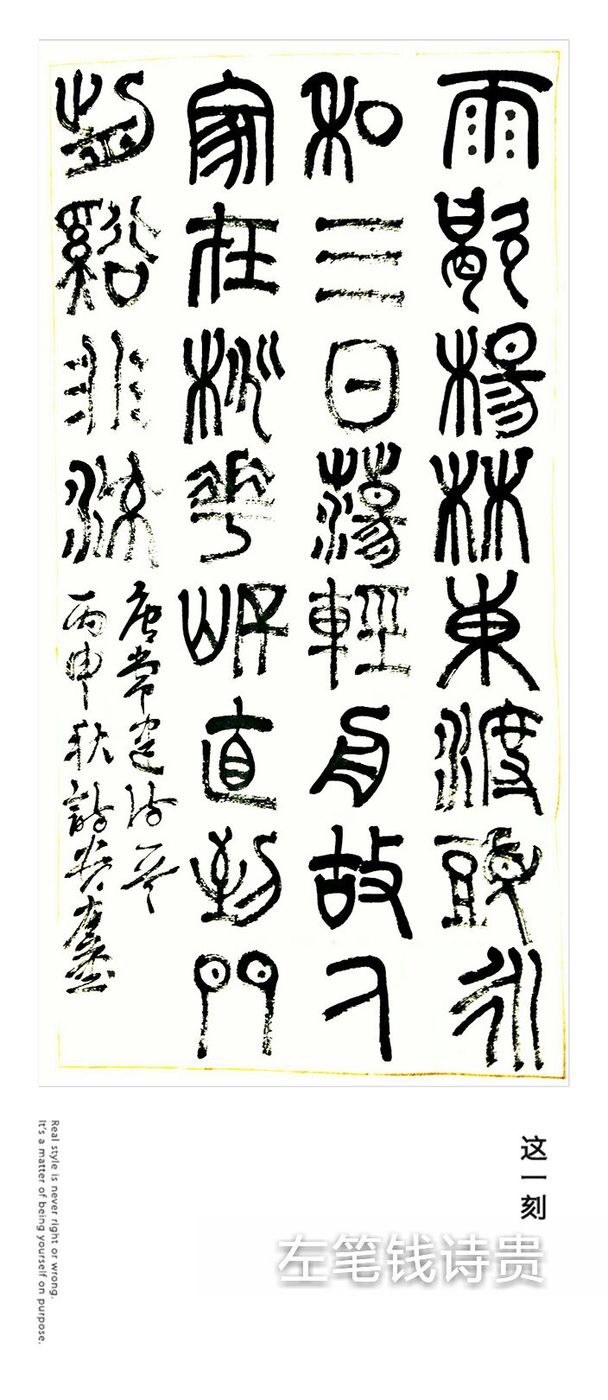 雨歇楊林東渡頭永
和三日蕩輕舟故人
家在桃花岸直到門
前谿水流
唐常建詩
丙申秋詩貴左書
这一刻
左笔钱诗贵
Real style is never right or wrong.
It's a matter of being yourself on purpose.